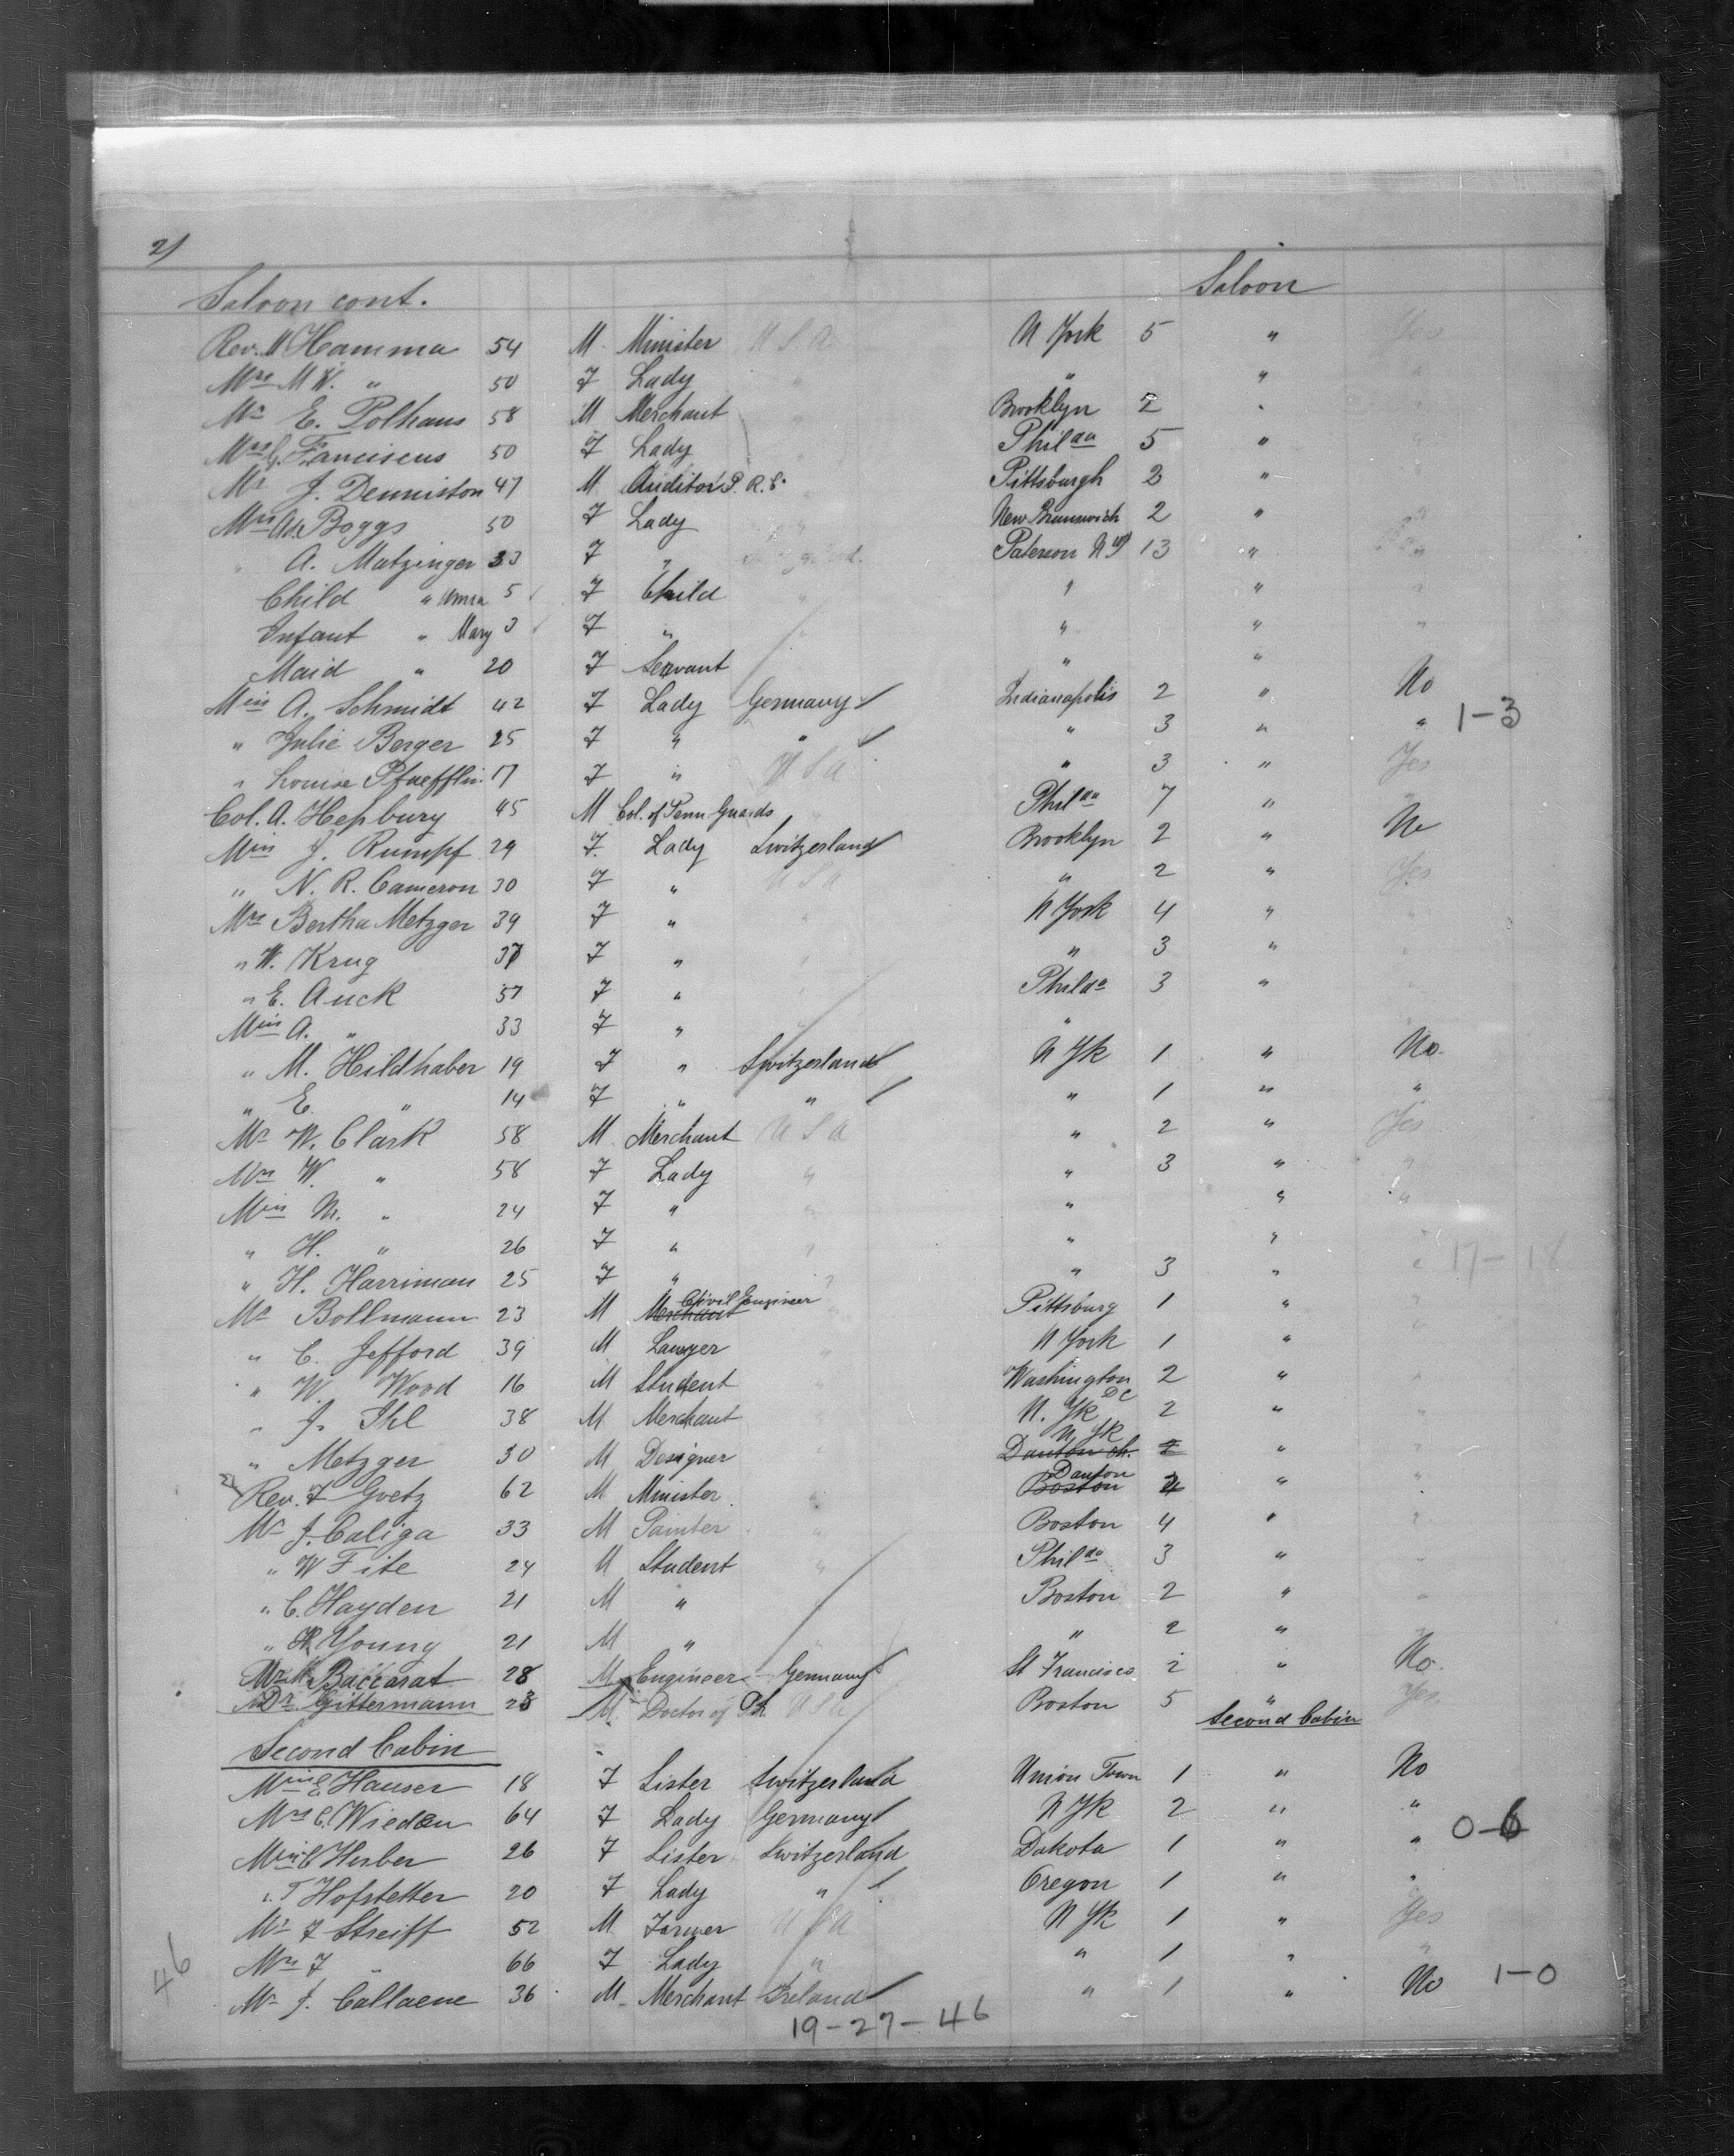 2)
Saloon cont. Saloon
Rev. M Hamma 54 M Minister U S A N York 5 " Yes
Mrs M W. " 50 F Lady " " " "
Mr E. Polhaus 58 M Merchant " Brooklyn 2 " "
Mrs G. Fanciscus 50 F Lady " Philda 5 " "
Mr J. Denniston 47 M Auditor P. R. C. " Pittsburgh 2 " "
Mrs Boggs 50 F Lady " New Brunswich 2 " "
" A. Matzinger 33 F " Paterson N Y 13 " "
Child " Anna 5 F Child " " " "
Infant " Mary 3 F " " " " "
Maid " 20 F Servant " "
Miss A. Schmidt 42 F Lady Germany Indianapolis 2 " No
" Julie Berger 25 F " " " 3 " " 1-3
" Louise Pfaefflin 17 F " U S A " 3 " Yes
Col. A. Hepbury 45 M Col. of Penn Guards " Philda 7 " "
Miss J. Rumpf 29 F. Lady Switzerland Brooklyn 2 " No
" N. R. Cameron 30 F " U S A " 2 " Yes
Mrs Bertha Metzger 39 F " " N York 4 " "
" W. Krug 37 F " " " 3 " "
" E. Auck 57 F " Philda 3 " "
Miss A. " 33 F " "
" M. Hildhaber 19 F " Switzerland N Yk 1 " No.
" E. " 14 F " " " 1 " "
Mr W. Clark 58 M Merchant U S A " 2 " Yes
Mrs W. " 58 F Lady " " 3 " "
Miss M. " 24 F " " " " "
" H. " 26 F " " " " "
" H. Harriman 25 F " " " 3 " " 17-18
Mr Bollmann 23 M Merchant Civil Engineer " Pittsburg 1 " "
" C. Jefford 39 M Lawyer " N York 1 " "
" W. Wood 16 M Student " Washington DC 2 " "
" J. Ihl 38 M Merchant " N. Yk 2 " "
" Metzger 30 M Designer " Danton oh. N Yk 2 " "
Rev. F Goetz 62 M Minister " Boston Danton 4 " "
Mr J. Caliga 33 M Painter " Boston 4 " "
" W Fite 24 M Student " Philda 3 " "
" C. Hayden 21 M " Boston 2 " "
" H. Young 21 M " " 2 " "
Mr. Baccarat 28 M Engineer Germany St Francisco 2 " No.
Dr. Gittermann 28 M Doctor of Ph U S A Boston 5 " Yes
Second Cabin
Second Cabin
Miss E. Hauser 18 F Sister Switzerland Union Town 1 " No
Mrs C. Wieden 64 F Lady Germany N Yk 2 " "
Miss C Herber 26 F Sister Switzerland Dakota 1 " " 0-6
" T Hofstetter 20 F Lady " Oregon 1 " "
Mr F Streiff 52 M Farmer U S A N Yk 1 " Yes
Mrs F " 66 F Lady " " 1 " "
Mr J. Callaene 36 M Merchant Ireland " 1 " No 1-0
46
19-27-46